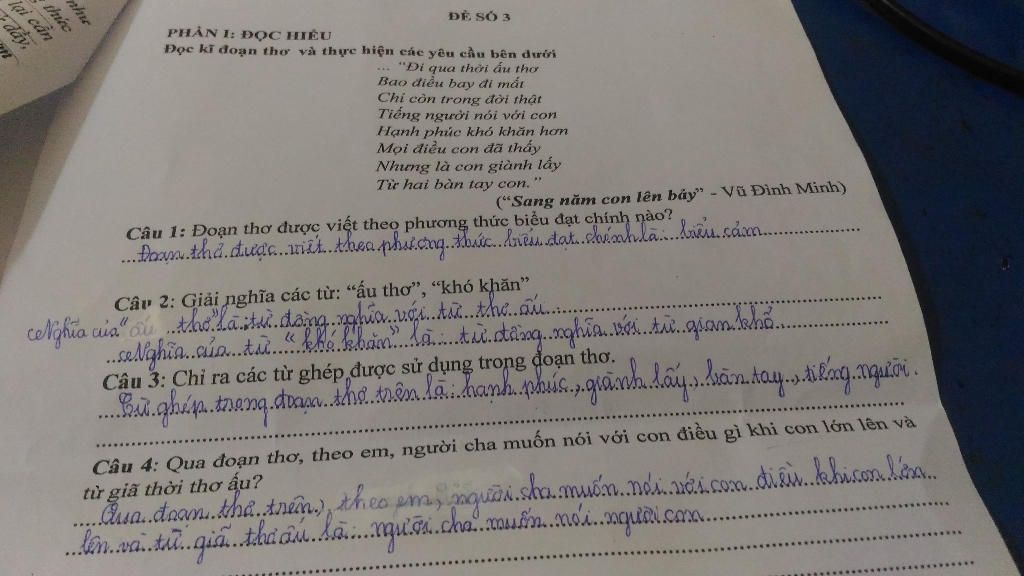 như
thức
lại cần
đây.
ĐỀ SỐ 3
PHẦN I: ĐỌC HIỂU
Đọc kĩ đoạn thơ và thực hiện các yêu cầu bên dưới
... "Đi qua thời ấu thơ
Bao điều bay đi mất
Chỉ còn trong đời thật
Tiếng người nói với con
Hạnh phúc khó khăn hơn
Mọi điều con đã thấy
Nhưng là con giành lấy
Từ hai bàn tay con."
("Sang năm con lên bảy" - Vũ Đình Minh)
Câu 1: Đoạn thơ được viết theo phương thức biểu đạt chính nào?
Đoạn thơ được viết theo phương thức biểu đạt chính là: biểu cảm
Câu 2: Giải nghĩa các từ: "ấu thơ", "khó khăn"
Nghĩa của "ấu thơ" là: từ đồng nghĩa với từ thơ ấu
Nghĩa của từ "khó khăn" là: từ đồng nghĩa với từ gian khổ
Câu 3: Chỉ ra các từ ghép được sử dụng trong đoạn thơ.
Từ ghép trong đoạn thơ trên là: hạnh phúc, giành lấy, bàn tay, tiếng người.
Câu 4: Qua đoạn thơ, theo em, người cha muốn nói với con điều gì khi con lớn lên và
từ giã thời thơ ấu?
Qua đoạn thơ trên, theo em, người cha muốn nói với con điều khi con lớn
lên và từ giã thơ ấu là: người cha muốn nói người con